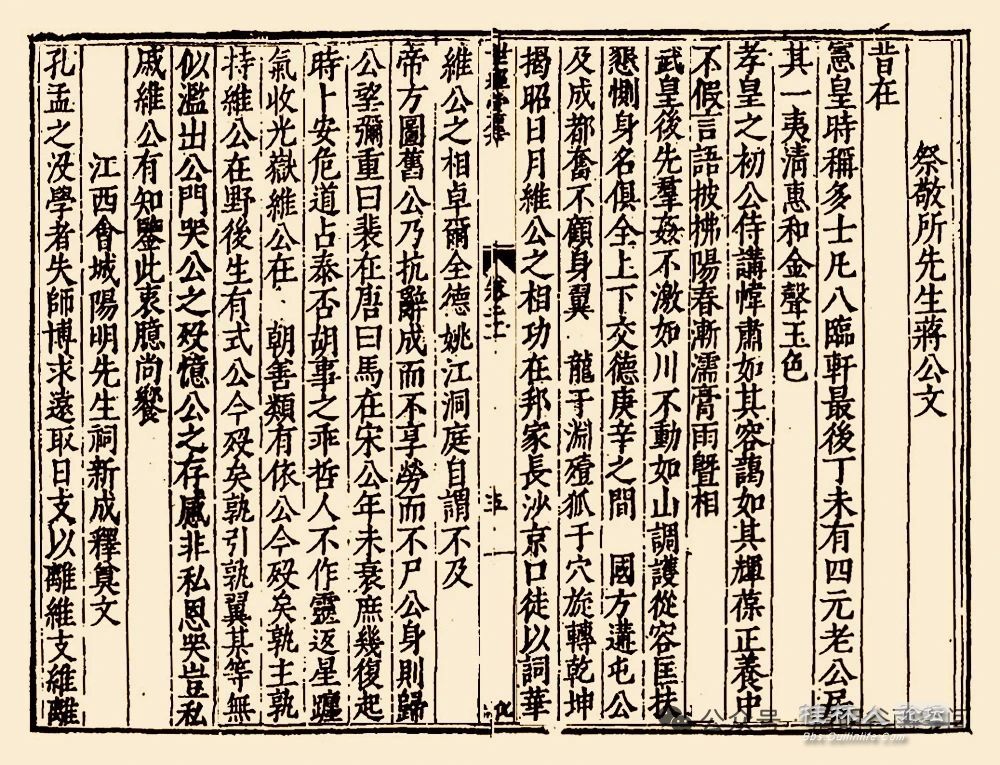 祭敬所先生蔣公文
昔在
憲皇時稱多士凡八臨軒最後丁未有四元老公居
其一夷清惠和金聲玉色
孝皇之初公侍講幃肅如其容藹如其輝葆正養中
不假言語披拂陽春漸濡膏雨曁相
武皇後先羣姦不激如川不動如山調護從容匡扶
懇惻身名俱全上下交德庚辛之間 國方遘屯公
及成都奮不顧身翼 龍于淵殪狐于穴旋轉乾坤
揭昭日月維公之相功在邦家長沙京口徒以詞華
維公之相卓爾全德姚江洞庭自謂不及
帝方圖舊公乃抗辭成而不享勞而不尸公身則歸
公望彌重曰裴在唐曰馬在宋公年未衰庶幾復起
時卜安危道占泰否胡事之乖哲人不作靈返星躔
氣收光嶽維公在 朝善類有依公今歿矣孰主孰
持維公在野後生有式公今歿矣孰引孰翼其等無
似濫出公門哭公之歿憶公之存慼非私恩哭豈私
戚維公有知鑒此衷臆尚饗
江西會城陽明先生祠新成釋奠文
孔孟之没學者失師博求遠取日支以離維支維離
公众号
桂林人论坛
bbs.Guilinlife.com